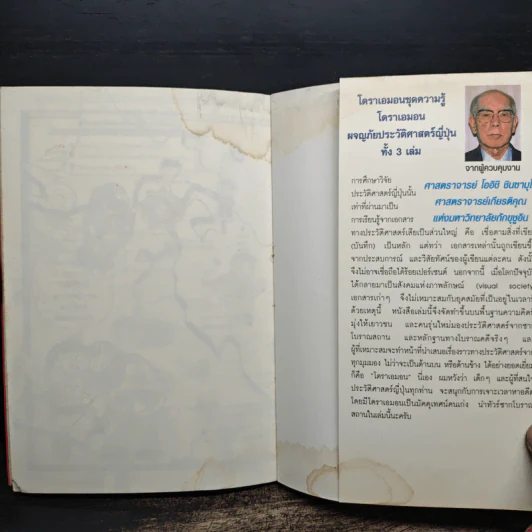 โดราเอมอนชุดความรู้
โดราเอมอน
ผจญภัยประวัติศาสตร์ญี่ปุ่น
ทั้ง 3 เล่ม
จากผู้ควบคุมงาน
ศาสตราจารย์ โออิชิ ชินซาบุโ
ศาสตราจารย์เกียรติคุณ
แห่งมหาวิทยาลัยกักขุชูอิน
การศึกษาวิจัย
ประวัติศาสตร์ญี่ปุ่นนั้น
เท่าที่ผ่านมาเป็น
การเรียนรู้จากเอกสาร
ทางประวัติศาสตร์เสียเป็นส่วนใหญ่ คือ เชื่อตามสิ่งที่เขีย
(บันทึก) เป็นหลัก แต่ทว่า เอกสารเหล่านั้นถูกเขียนขึ้
จากประสบการณ์ และวิสัยทัศน์ของผู้เขียนแต่ละคน ดังนั้
จึงไม่อาจเชื่อถือได้ร้อยเปอร์เซนต์ นอกจากนี้ เมื่อโลกปัจจุบั
ได้กลายมาเป็นสังคมแห่งภาพลักษณ์ (visual society
เอกสารเก่าๆ จึงไม่เหมาะสมกับยุคสมัยที่เป็นอยู่ในเวลานี้
ด้วยเหตุนี้ หนังสือเล่มนี้จึงจัดทำขึ้นบนพื้นฐานความคิดที่
มุ่งให้เยาวชน และคนรุ่นใหม่มองประวัติศาสตร์จากซาก
โบราณสถาน และหลักฐานทางโบราณคดีจริงๆ แล
ผู้ที่เหมาะสมจะทำหน้าที่นำเสนอเรื่องราวทางประวัติศาสตร์จาก
ทุกมุมมอง ไม่ว่าจะเป็นด้านบน หรือด้านข้าง ได้อย่างยอดเยี่ยม
ก็คือ "โดราเอมอน" นี่เอง ผมหวังว่า เด็กๆ และผู้ที่สนใจ
ประวัติศาสตร์ญี่ปุ่นทุกท่าน จะสนุกกับการเจาะเวลาหาอดีต
โดยมีโดราเอมอนเป็นมัคคุเทศก์คนเก่ง นำทัวร์ซากโบราณ
สถานในเล่มนี้นะครับ